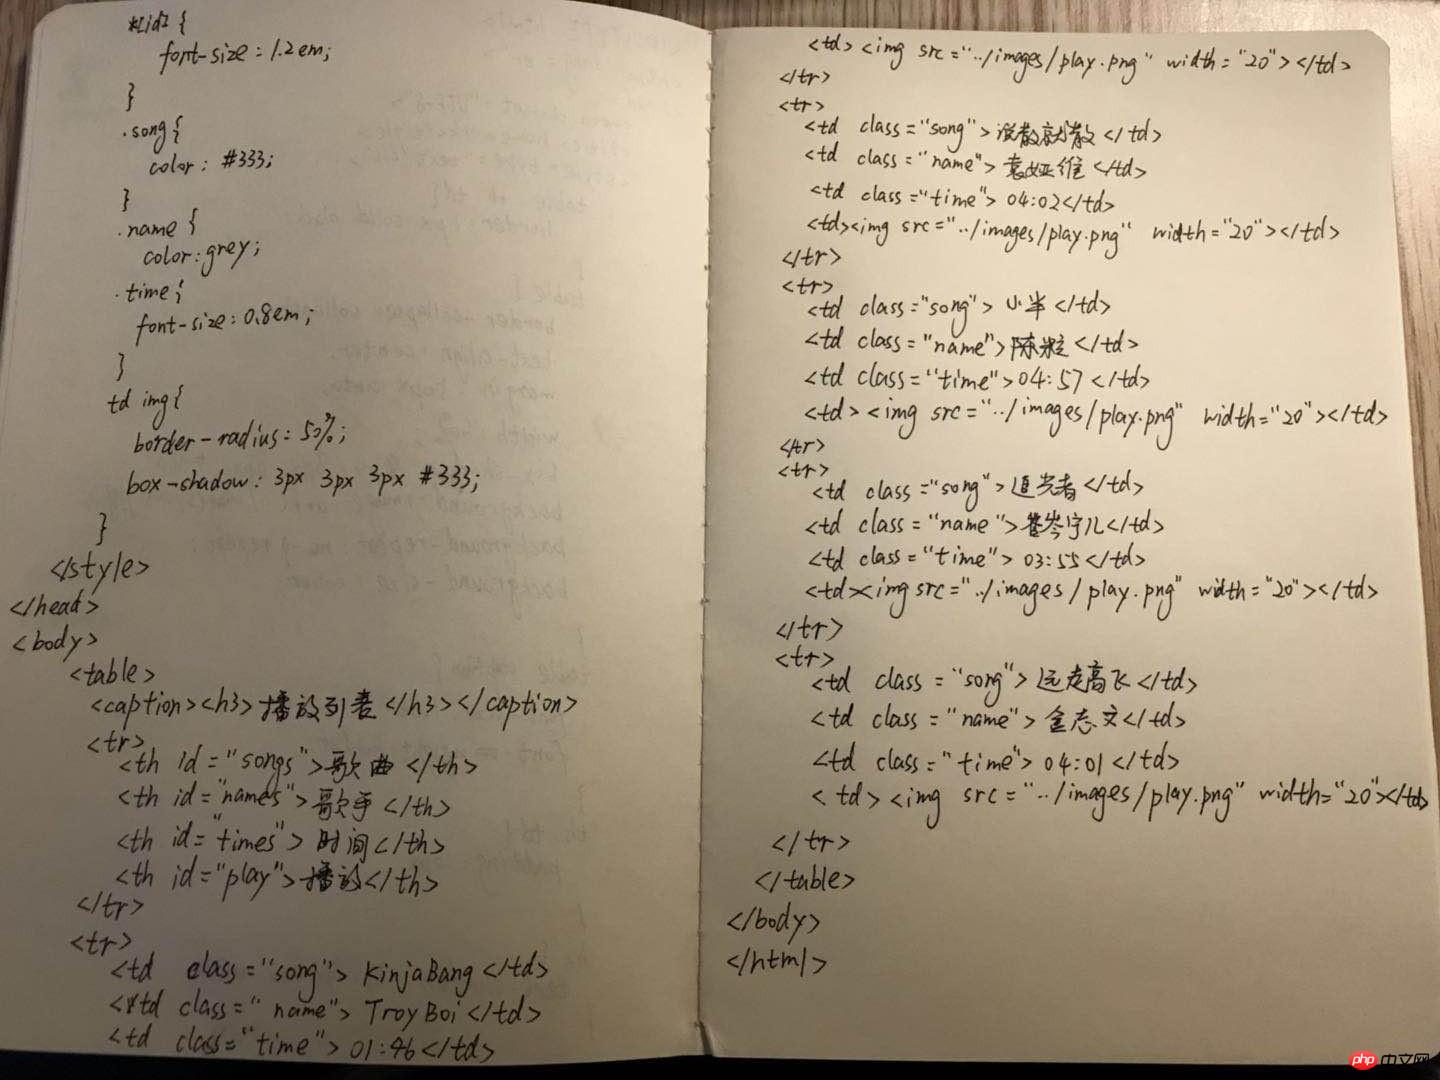 *[id] {
font-size : 1.2em;
}
.song{
color : #333;
}
.name {
color : grey;
.time{
font-size : 0.8em;
}
td img{
border-radius : 50%;
box-shadow : 3px 3px 3px #333;
}
</style>
</head>
<body>
<table>
<caption><h3>播放列表</h3></caption>
<tr>
<th id="songs">歌曲</th>
<th id="names">歌手</th>
<th id="times">时间</th>
<th id="play">播放</th>
</tr>
<tr>
<td class="song">KinjaBang</td>
<td class="name">Troy Boi</td>
<td class="time">01:46</td>
<td><img src="../images/play.png" width="20"></td>
</tr>
<tr>
<td class="song">没散就散</td>
<td class="name">袁娅维</td>
<td class="time">04:02</td>
<td><img src="../images/play.png" width="20"></td>
</tr>
<tr>
<td class="song">小半</td>
<td class="name">陈粒</td>
<td class="time">04:57</td>
<td><img src="../images/play.png" width="20"></td>
</tr>
<tr>
<td class="song">追光者</td>
<td class="name">岑宁儿</td>
<td class="time">03:55</td>
<td><img src="../images/play.png" width="20"></td>
</tr>
<tr>
<td class="song">远走高飞</td>
<td class="name">金志文</td>
<td class="time">04:01</td>
<td><img src="../images/play.png" width="20"></td>
</tr>
</table>
</body>
</html>
php中文网